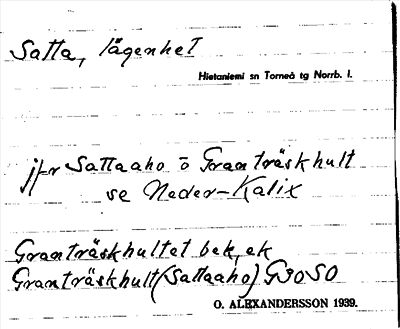 Satta, lägenhet
Hietaniemi sn Torneå tg Norrb. l.
jfr Sattaaho o Granträskhult
se Neder-Kalix
Granträskhultet bek, ek
Granträskhult (Sattaaho) G30SO
O. ALEXANDERSSON 1939.